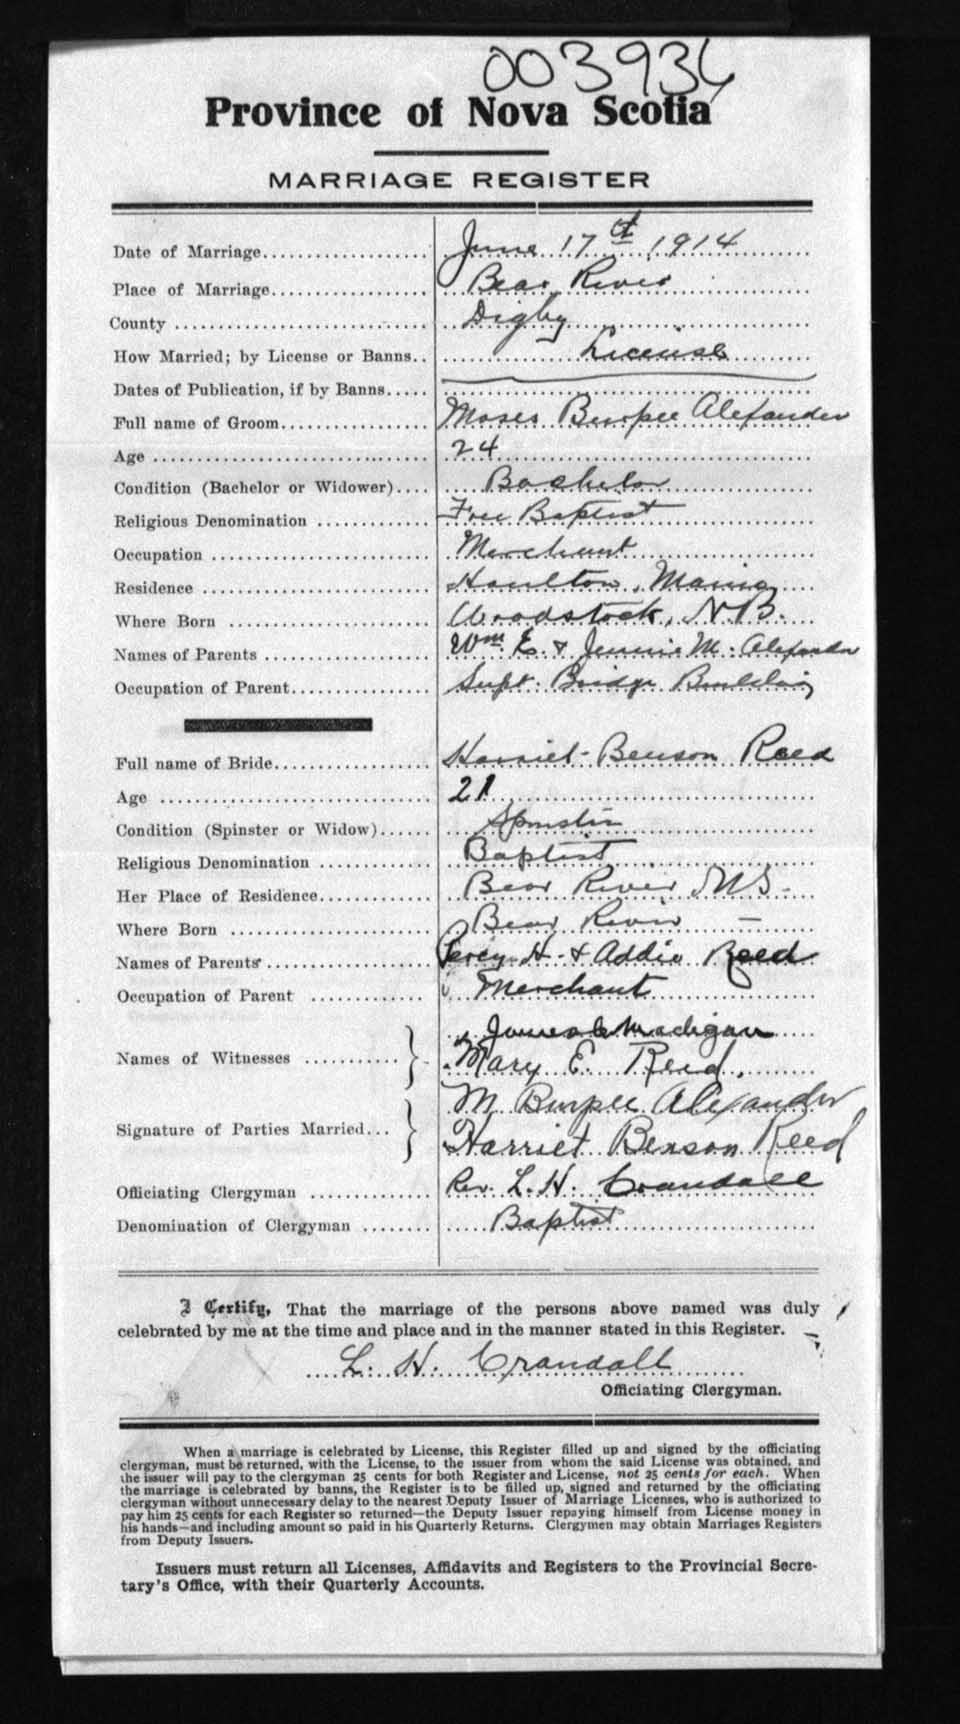 003936
Province of Nova Scotia
MARRIAGE REGISTER
Date of Marriage.................... June 17th 1914
Place of Marriage................... Bear River
County ............................ Digby
How Married; by License or Banns.. License
Dates of Publication, if by Banns.....
Full name of Groom.................. Moses Burpee Alexander
Age ................................ 24
Condition (Bachelor or Widower).... Bachelor
Religious Denomination ............. Free Baptist
Occupation ......................... Merchant
Residence .......................... Houlton, Maine
Where Born ......................... Woodstock, N.B.
Names of Parents ................... Wm E. & Jennie M. Alexander
Occupation of Parent................ Supt. Bridge Building
Full name of Bride.................. Harriet Benson Reed
Age ................................ 21
Condition (Spinster or Widow)...... Spinster
Religious Denomination ............. Baptist
Her Place of Residence.............. Bear River NS-
Where Born ......................... Bear River —
Names of Parents.................... Percy H & Addie Reed
Occupation of Parent ............... Merchant
Names of Witnesses ........... James Madigan
Mary E. Reed.
Signature of Parties Married... M Burpee Alexander
Harriet Benson Reed
Officiating Clergyman .............. Rev. L. H. Crandall
Denomination of Clergyman ........ Baptist
I Certify, That the marriage of the persons above named was duly
celebrated by me at the time and place and in the manner stated in this Register.
L. H. Crandall
Officiating Clergyman.
When a marriage is celebrated by License, this Register filled up and signed by the officiating
clergyman, must be returned, with the License, to the issuer from whom the said License was obtained, and
the issuer will pay to the clergyman 25 cents for both Register and License, not 25 cents for each. When
the marriage is celebrated by banns, the Register is to be filled up, signed and returned by the officiating
clergyman without unnecessary delay to the nearest Deputy Issuer of Marriage Licenses, who is authorized to
pay him 25 cents for each Register so returned—the Deputy Issuer repaying himself from License money in
his hands—and including amount so paid in his Quarterly Returns. Clergymen may obtain Marriages Registers
from Deputy Issuers.
Issuers must return all Licenses, Affidavits and Registers to the Provincial Secre-
tary's Office, with their Quarterly Accounts.